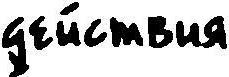 действия